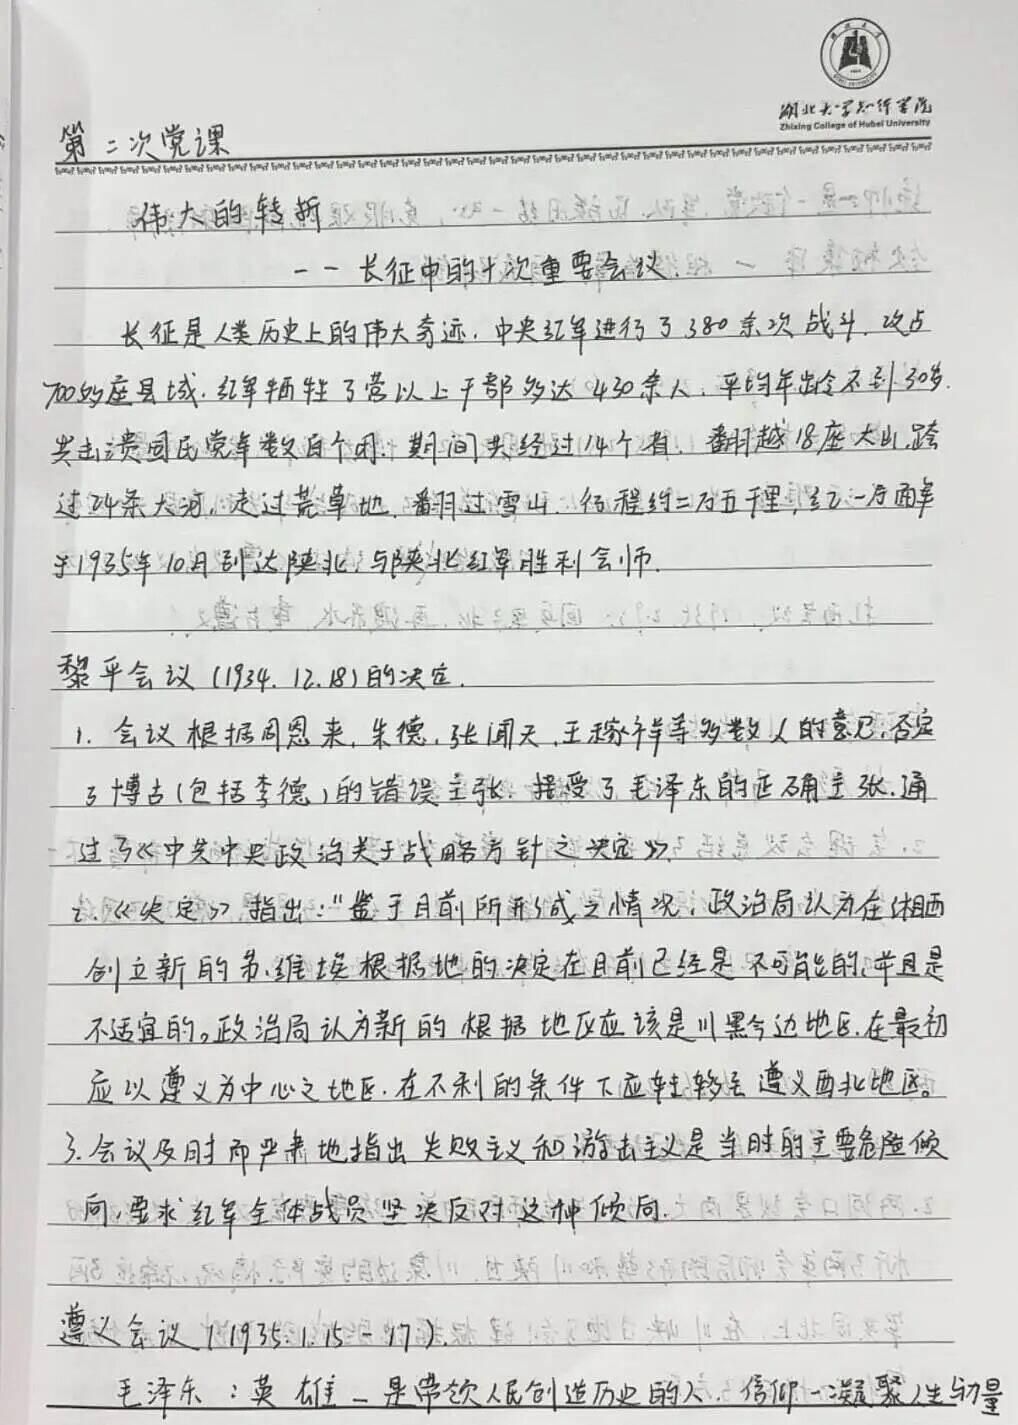 湖北大学知行学院
Zhixing College of Hubei University
第二次党课
伟大的转折
——长征中的十次重要会议.
长征是人类历史上的伟大奇迹.中央红军进行了380余次战斗.攻占
700多座县城.红军牺牲了营以上干部多达430余人.平均年龄不到30岁.
共击溃国民党军数百个团.期间共经过14个省.翻越18座大山.跨
过24条大河.走过荒草地.翻过雪山.行程约二万五千里,红一方面军
于1935年10月到达陕北,与陕北红军胜利会师.
黎平会议(1934.12.18)的决定.
1.会议根据周恩来,朱德,张闻天,王稼祥等多数人的意见,否定
了博古(包括李德)的错误主张.接受了毛泽东的正确主张.通
过了《中共中央政治关于战略方针之决定》.
2.《决定》指出:"鉴于目前所形成之情况,政治局认为在湘西
创立新的苏维埃根据地的决定在目前已经是不可能的,并且是
不适宜的。政治局认为新的根据地区应该是川黔边地区.在最初
应以遵义为中心之地区.在不利的条件下应转移至遵义西北地区。
3.会议及时而严肃地指出失败主义和游击主义是当时的主要危险倾
向,要求红军全体战员坚决反对这种倾向.
遵义会议(1935.1.15-17).
毛泽东:英雄—是带领人民创造历史的人.信仰—凝聚人生力量